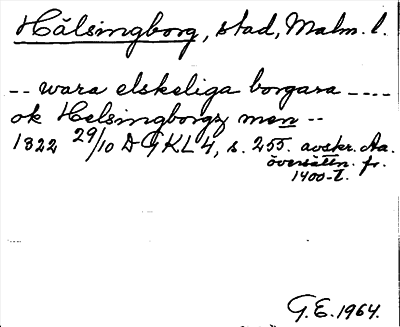 Hälsingborg, stad, Malm. l.
-- wara elskeliga borgara ----
ok Helsingborgz men --
1322 29/10 D G K L 4, s. 255. avskr. Aa.
översättn. fr.
1400-t.
G.E. 1964.